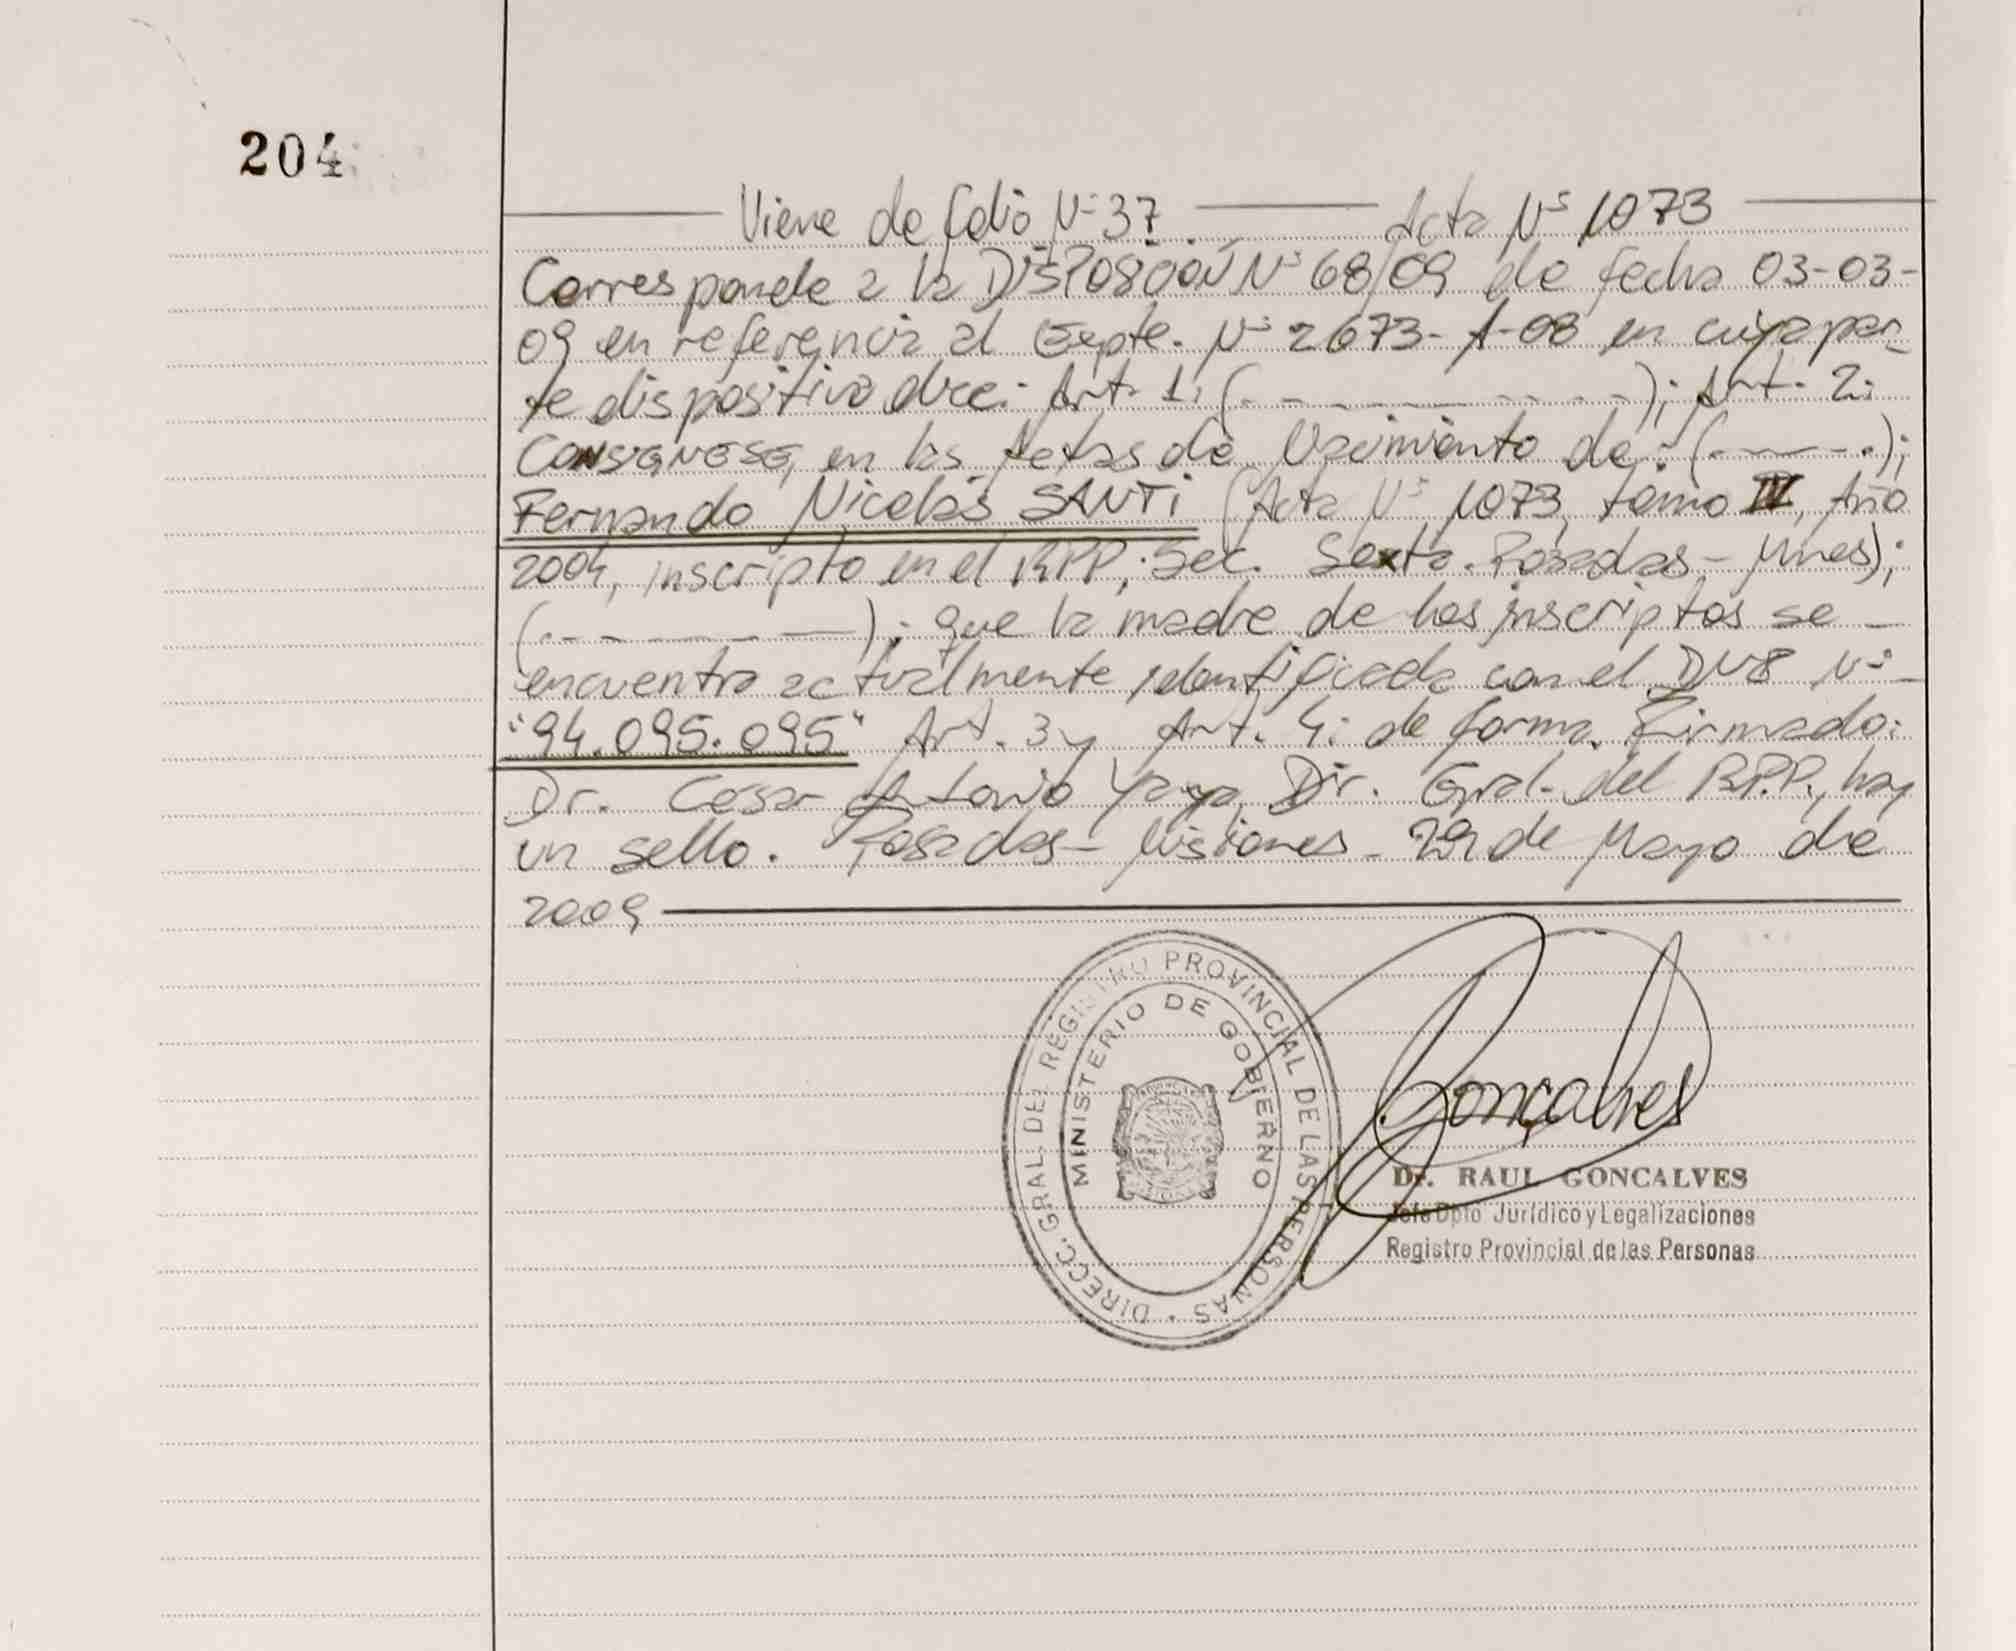 204
Viene de folio Nº 37 Acta Nº 1073
Corresponde a la DISPOSICION Nº 68/09 de fecha 03-03-
09 en referencia al Expte. Nº 2673-A-08 en cuya par-
te dispositiva dice: Art. 1: (. - - - - - - - -); Art. 2:
CONSIGNESE, en las Actas de Nacimiento de: (. - - - .);
Fernando Nicolás SANTI (Acta Nº 1073, tomo IV, Año
2004, inscripto en el RPP, Sec. Sexta. Posadas - Mnes);
(. - - - - - -); que la madre de los inscriptos se -
encuentra actualmente identificada con el DNI Nº -
"94.095.095" Art. 3 y Art. 4: de forma. Firmado:
Dr. Cesar Antonio Yaya, Dir. Gral. del R.P.P., hay
un sello. Posadas - Misiones - 29 de Mayo de
2009
DIRECC. GRAL. DEL REGISTRO PROVINCIAL DE LAS PERSONAS
MINISTERIO DE GOBIERNO
Gonçalves
Dr. RAUL GONCALVES
Jefe Dpto Jurídico y Legalizaciones
Registro Provincial de las Personas